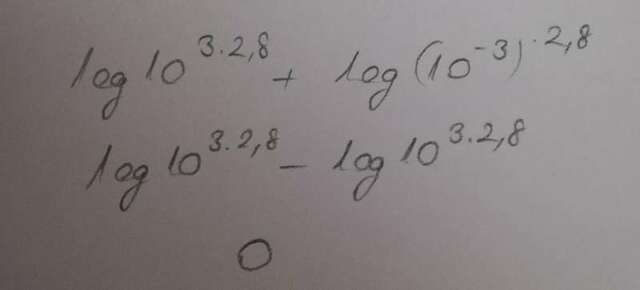 log 10^3·2,8 + log(10^-3)^·2,8
log 10^3·2,8 - log 10^3·2,8
0